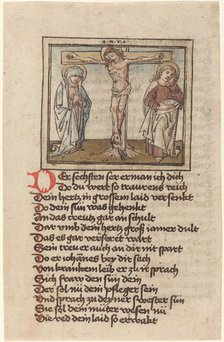 i n r i
Der sechsten ser erman ich dich
Do du wert so traurens reich
Dein hertz in grossem laid versenkt
Do dein sun was gehenkt
An das kreutz gar an schult
Dar umb dein hertz groß iamer dult
Das es gar verseret wart
Dein treu er auch an dir nit spart
Do er iohanes bei dir sach
Von krankem leib er zu ir sprach
Sich fraw den sun dein
Der sol nu dein pfleger sein
Und sprach zu dem er swester sun
Sie sol dein muter wesen nu
Die red dem laid so erwakt